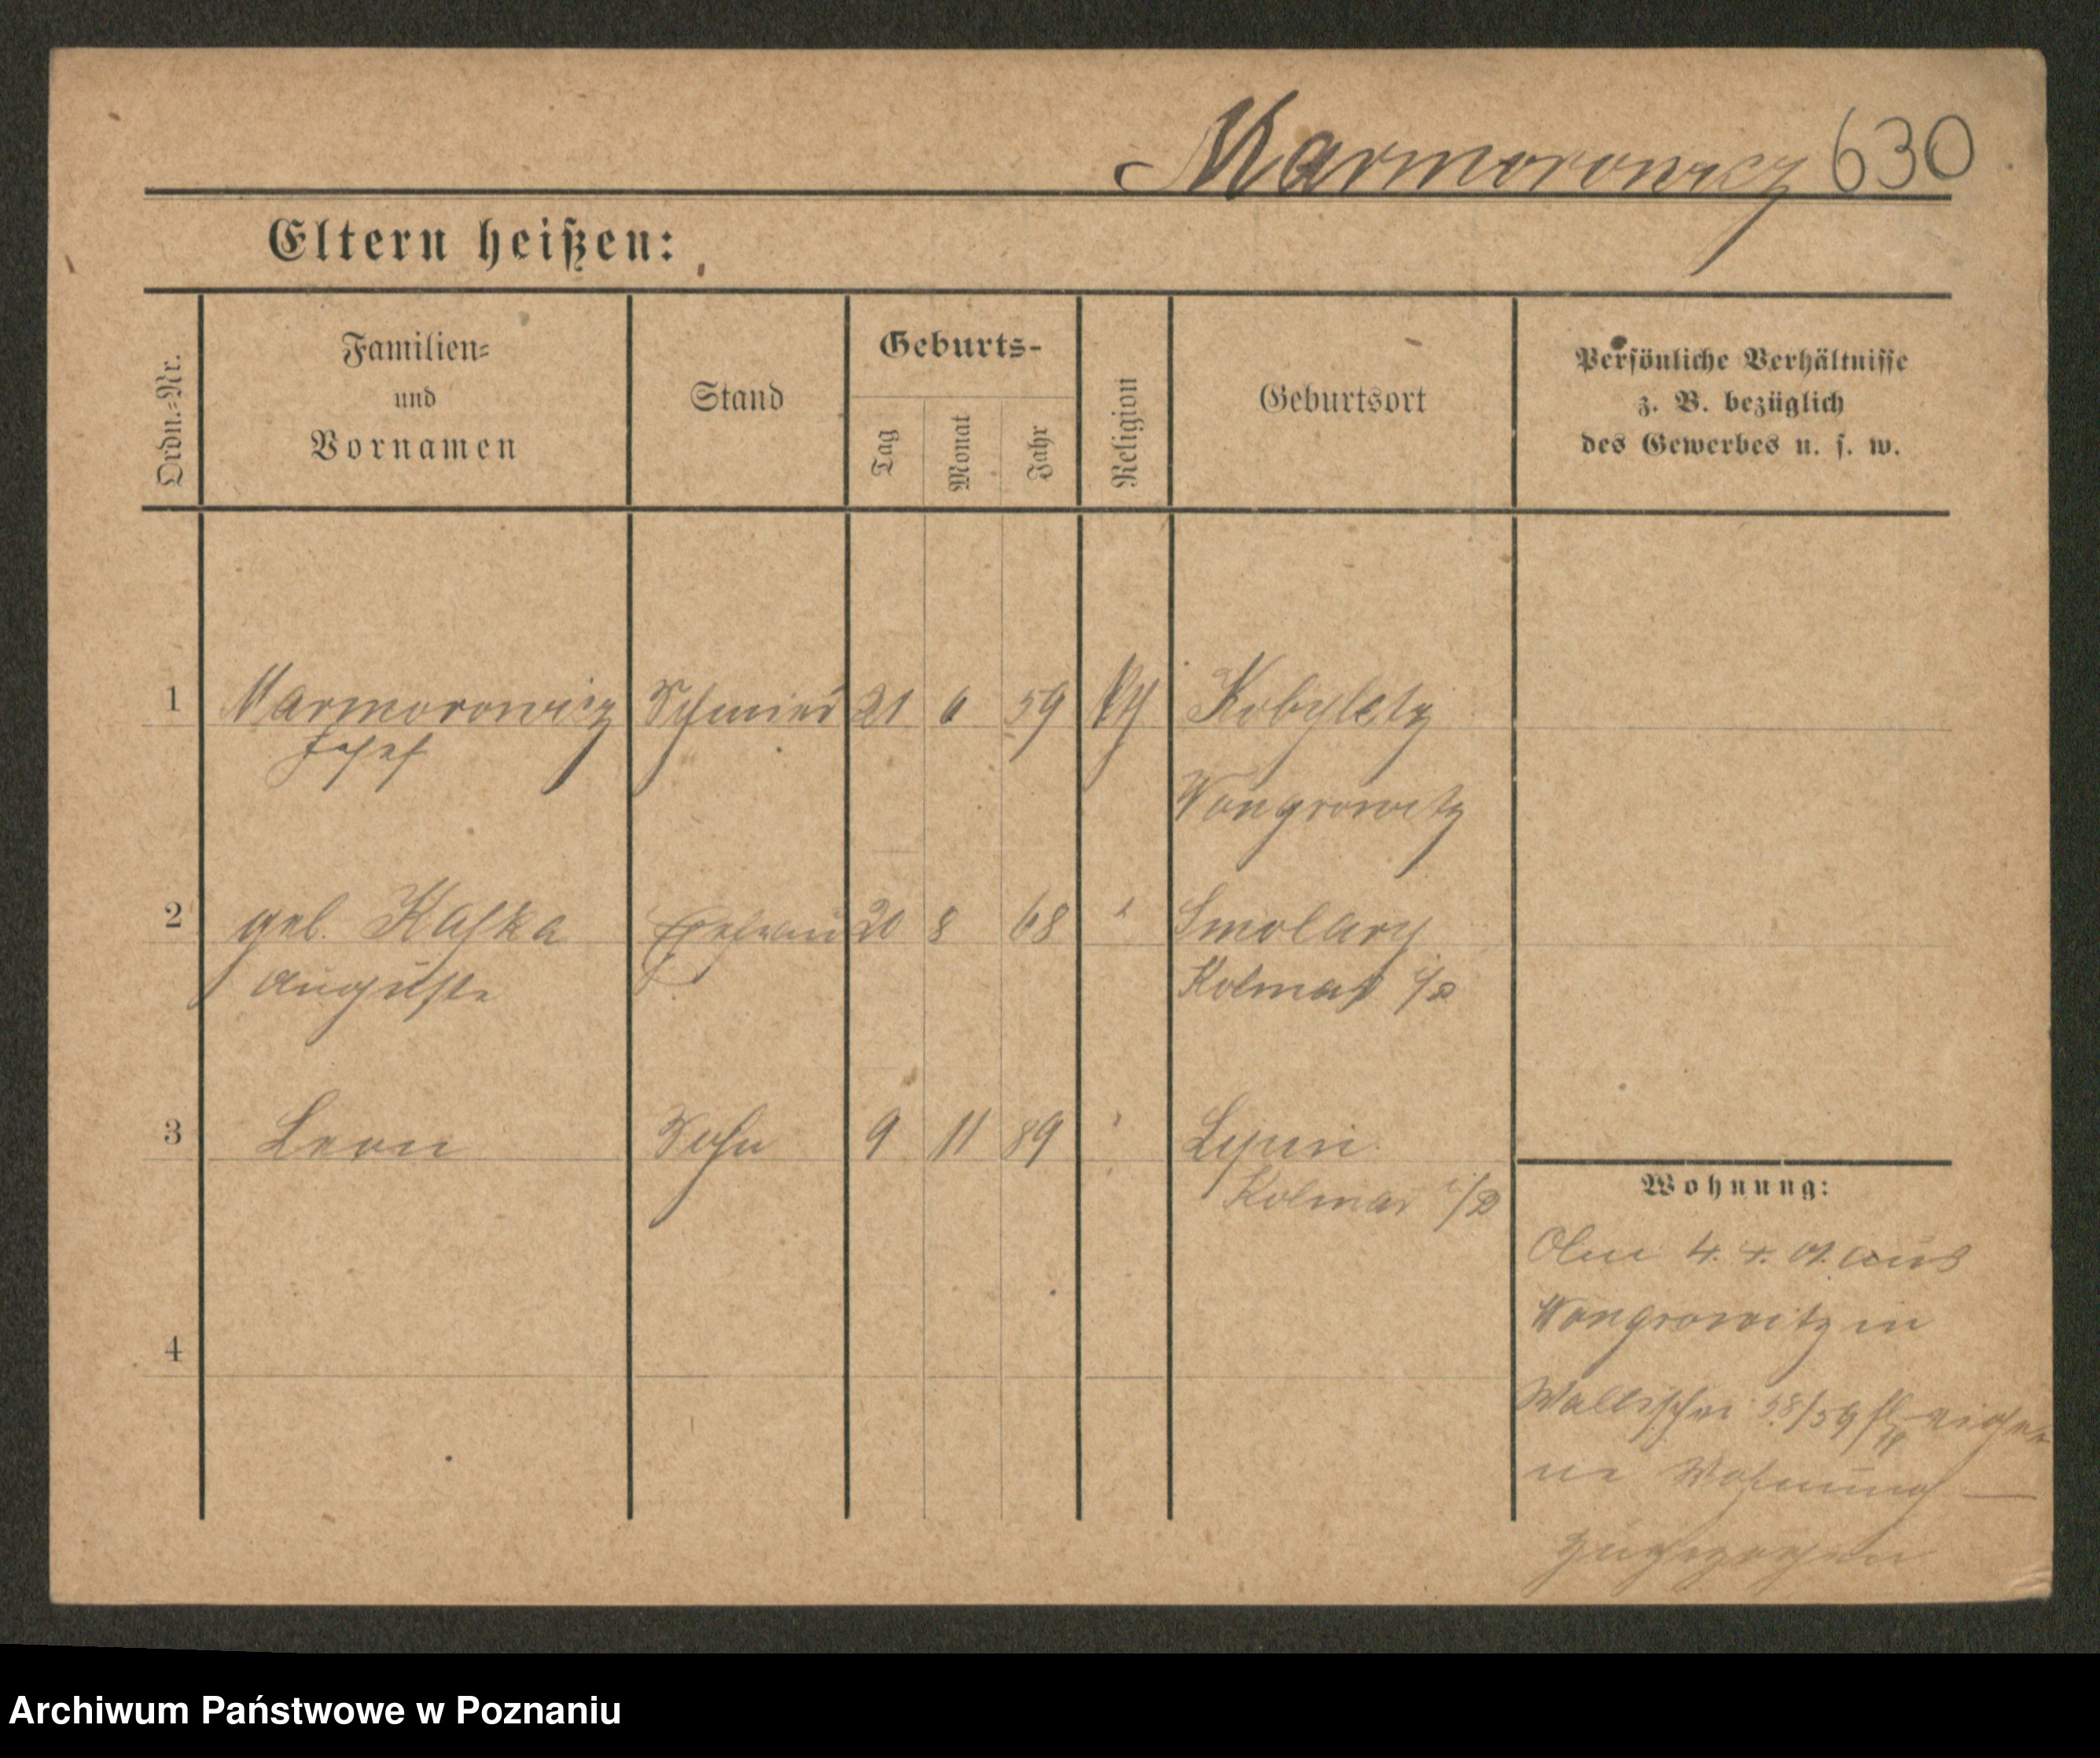 Marmorowicz 630
Eltern heißen:
Ordn.-Nr.
Familien-
und
Vornamen
Stand
Geburts-
Tag
Monat
Jahr
Religion
Geburtsort
Persönliche Verhältnisse
z. B. bezüglich
des Gewerbes u. s. w.
1 Marmorowicz Schmied 21 6 59 Kobyletz
Josef
Wongrowitz
2 geb. Kafka Ehefrau 20 8 68 Smolary
Auguste Kolmar i/P
3 Leon Sohn 9 11 89 Lipin
Kolmar i/P
4
Wohnung:
4. 4. 01. aus
Wongrowitz in
Wallischei 58/59 eige-
ne Wohnung —
zugezogen
Archiwum Państwowe w Poznaniu